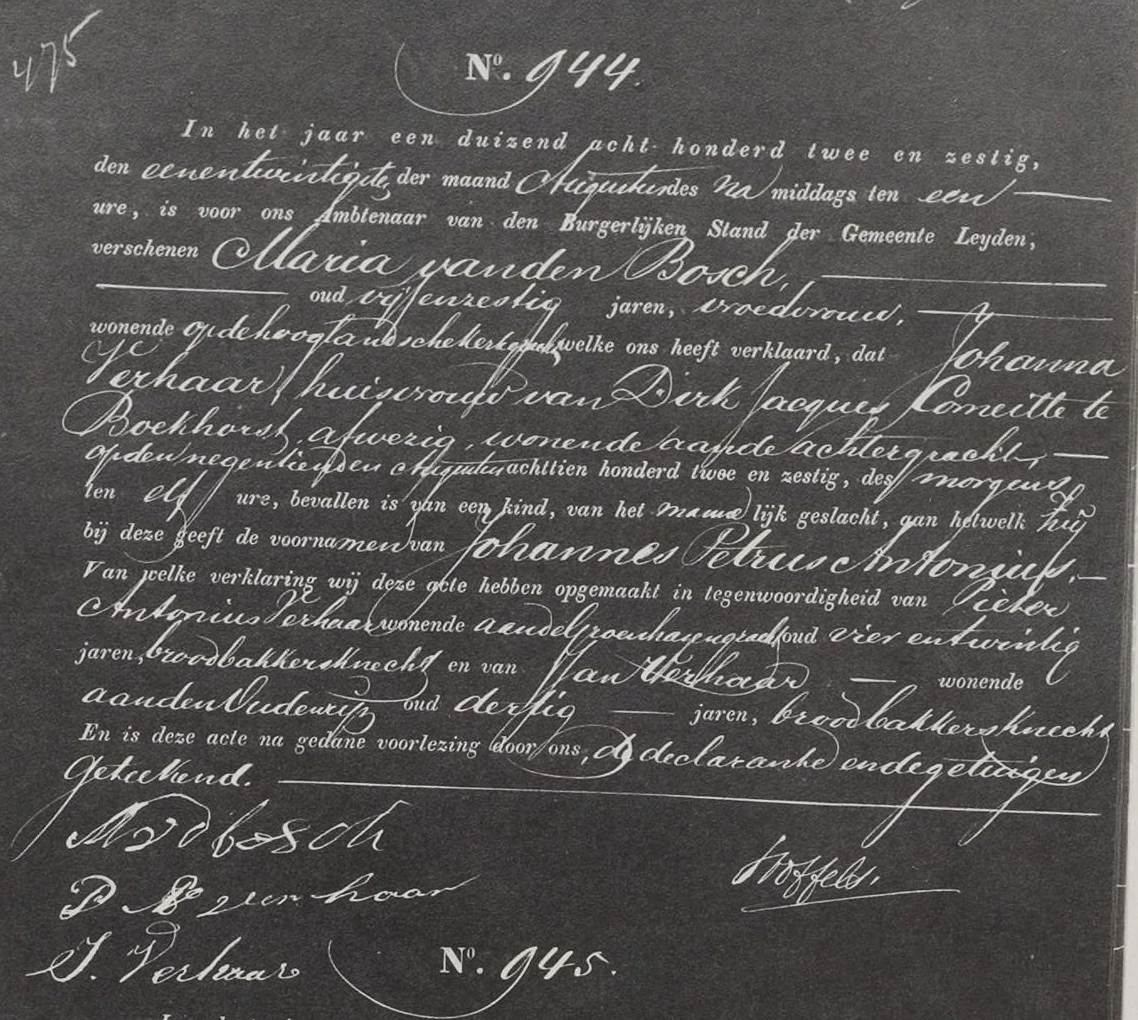 475
Nº. 944.
In het jaar een duizend acht honderd twee en zestig,
den eenentwintigste der maand Augustus des na middags ten een
ure, is voor ons Ambtenaar van den Burgerlijken Stand der Gemeente Leyden,
verschenen Maria vanden Bosch,
oud vijfenzestig jaren, vroedvrouw,
wonende opdehooglandschekerkgracht, welke ons heeft verklaard, dat Johanna
Verhaar, huisvrouw van Dirk Jacques te
Boekhorst, afwezig, wonende aande achtergracht,
opden negentienden Augustus achttien honderd twee en zestig, des morgens
ten elf ure, bevallen is van een kind, van het manne lijk geslacht, aan hetwelk zij
bij deze geeft de voornamen van Johannes Petrus Antonius.
Van welke verklaring wij deze acte hebben opgemaakt in tegenwoordigheid van Pieter
Antonius Verhaar wonende aandeGroenhazengracht oud vier entwintig
jaren, broodbakkersknecht en van Jan Verhaar wonende
aandenOudenrijn oud dertig jaren, broodbakkersknecht
En is deze acte na gedane voorlezing door ons, de declarante endegetuigen
geteekend.
MvdBosch
P A Verhaar
Stoffels.
J. Verhaar
Nº. 945.